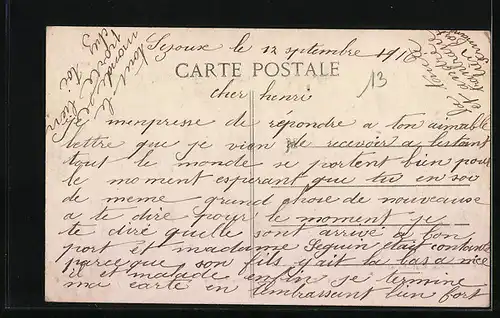 le 12 septembre 191
CARTE POSTALE
13
cher henri
Je menpresse de répondre a ton aimable
lettre que je vien de recevoir a lestant
tout le monde se portent bien pour
le moment esperant que tu en soi
de meme grand chose de nouveause
a te dire pour le moment je
te diré quelle sont arrivé a bon
port et madame Seguin était contante
parce que son fils y ait la bas a nice
il et malade enfin je termine
ma carte en tembrassant bien fort
tout le
monde